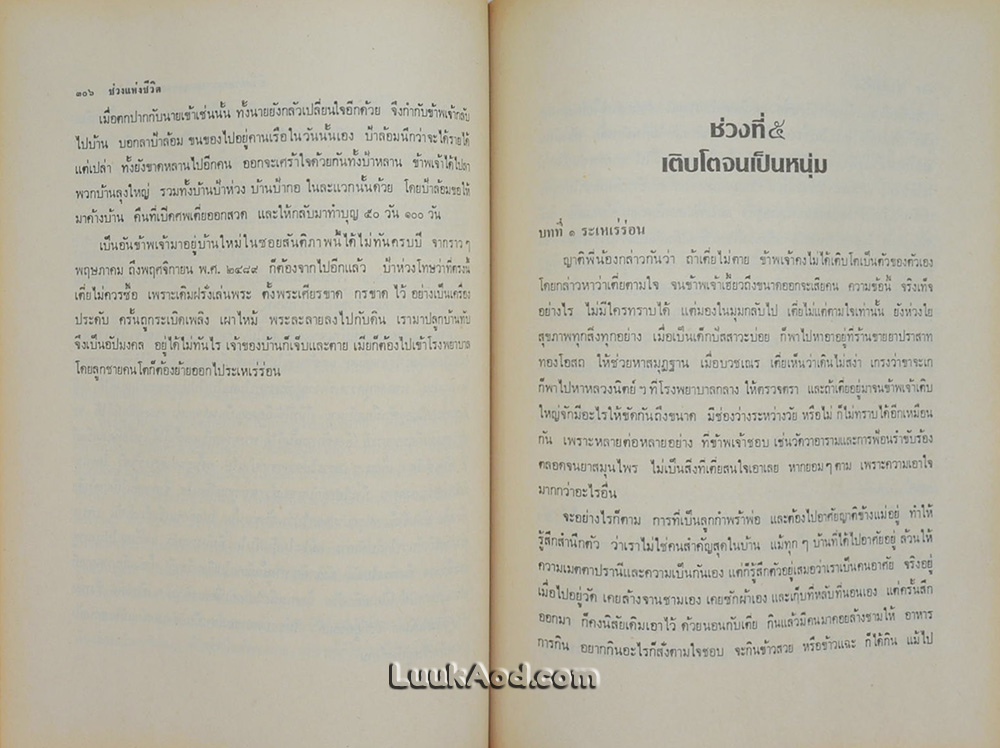 ๓๐๖ ช่วงแห่งชีวิต
เมื่อตกปากกับนายเข้าเช่นนั้น ทั้งนายยังกลัวเปลี่ยนใจอีกด้วย จึงกำกับข้าพเจ้ากลับ
ไปบ้าน บอกลาป้าล้อม ขนของไปอยู่คานเรือในวันนั้นเอง ป้าล้อมนึกว่าจะได้รายได้
แต่เปล่า ทั้งยังขาดหลานไปอีกคน ออกจะเศร้าใจด้วยกันทั้งป้าหลาน ข้าพเจ้าได้ไปลา
พวกบ้านลุงใหญ่ รวมทั้งบ้านป้าห่วง บ้านป้ากอ ในละแวกนั้นด้วย โดยป้าล้อมขอให้
มาค้างบ้าน คืนที่เปิดศพเตี่ยออกสวด และให้กลับมาทำบุญ ๕๐ วัน ๑๐๐ วัน
เป็นอันข้าพเจ้ามาอยู่บ้านใหม่ในซอยสันติภาพนี้ได้ไม่ทันครบปี จากราวๆ
พฤษภาคม ถึงพฤศจิกายน พ.ศ. ๒๔๘๙ ก็ต้องจากไปอีกแล้ว ป้าห่วงโทษว่าที่ตรงนี้
เตี่ยไม่ควรซื้อ เพราะเดิมฝรั่งเล่นพระ ตั้งพระเศียรขาด กรขาด ไว้ อย่างเป็นเครื่อง
ประดับ ครั้นถูกระเบิดเพลิง เผาไหม้ พระละลายลงไปกับดิน เรามาปลูกบ้านทับ
จึงเป็นอัปมงคล อยู่ได้ไม่ทันไร เจ้าของบ้านก็เจ็บและตาย เมียก็ต้องไปเข้าโรงพยาบาล
โดยลูกชายคนโตก็ต้องย้ายออกไประเหเร่ร่อน
ช่วงที่ ๕
เติบโตจนเป็นหนุ่ม
บทที่ ๑ ระเหเร่ร่อน
ญาติพี่น้องกล่าวกันว่า ถ้าเตี่ยไม่ตาย ข้าพเจ้าคงไม่ได้เติบโตเป็นตัวของตัวเอง
โดยกล่าวหาว่าเตี่ยตามใจ จนข้าพเจ้าเฮี้ยวถึงขนาดออกจะเสียคน ความข้อนี้ จริงเท็จ
อย่างไร ไม่มีใครทราบได้ แต่มองในมุมกลับไป เตี่ยไม่แต่ตามใจเท่านั้น ยังห่วงใย
สุขภาพทุกสิ่งทุกอย่าง เมื่อเป็นเด็กปัสสาวะบ่อย ก็พาไปหาอาอยู่ที่ร้านขายยาปราสาท
ทองโอสถ ให้ช่วยหาสมุฏฐาน เมื่อบวชเณร เตี่ยเห็นว่าเดินไม่สง่า เกรงว่าขาจะเก
ก็พาไปหาหลวงนิตย์ฯ ที่โรงพยาบาลกลาง ให้ตรวจตรา และถ้าเตี่ยอยู่มาจนข้าพเจ้าเติบ
ใหญ่จักมีอะไรให้ขัดกันถึงขนาด มีช่องว่างระหว่างวัย หรือไม่ ก็ไม่ทราบได้อีกเหมือน
กัน เพราะหลายต่อหลายอย่าง ที่ข้าพเจ้าชอบ เช่นวัดวาอารามและการฟ้อนรำขับร้อง
ตลอดจนยาสมุนไพร ไม่เป็นสิ่งที่เตี่ยสนใจเอาเลย หากยอมๆ ตาม เพราะความเอาใจ
มากกว่าอะไรอื่น
จะอย่างไรก็ตาม การที่เป็นลูกกำพร้าพ่อ และต้องไปอาศัยญาติข้างแม่อยู่ ทำให้
รู้สึกสำนึกตัว ว่าเราไม่ใช่คนสำคัญสุดในบ้าน แม้ทุกๆ บ้านที่ได้ไปอาศัยอยู่ ล้วนให้
ความเมตตาปรานีและความเป็นกันเอง แต่ก็รู้สึกตัวอยู่เสมอว่าเราเป็นคนอาศัย จริงอยู่
เมื่อไปอยู่วัด เคยล้างจานชามเอง เคยซักผ้าเอง และเก็บที่หลับที่นอนเอง แต่ครั้นสึก
ออกมา ก็คงนิสัยเดิมเอาไว้ ด้วยนอนกับเตี่ย กินแล้วมีคนมาคอยล้างชามให้ อาหาร
การกิน อยากกินอะไรก็สั่งตามใจชอบ จะกินข้าวสวย หรือข้าวแฉะ ก็ได้กิน แม้ไป
LuukAod.com